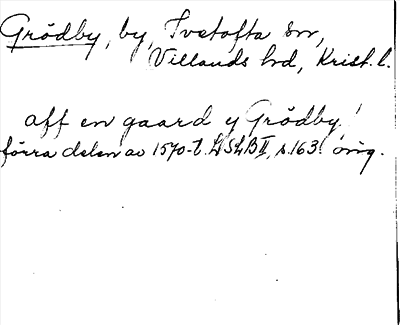 Grödby, by, Ivetofta sn,
Villands hd, Krist. l.
aff en gaard y Grödby!
förra delen av 1570-t. LSLB II, s. 163. orig.